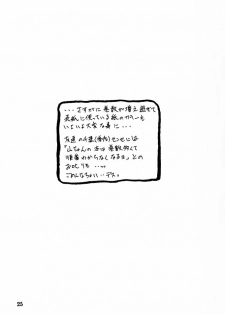 ...さすがに巻数が増え過ぎて
表紙に使っている紙のカラーも
いよいよ大変な事に...
友達の
「山ちゃんの本は巻数的くて
順番わからなくなるョ」との
お叱りも.....
ごめんなちぃ...デス。
25